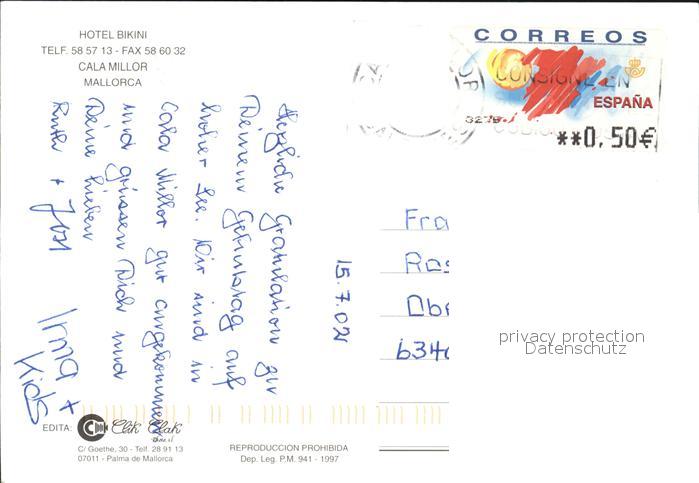 HOTEL BIKINI
TELF. 58 57 13 - FAX 58 60 32
CALA MILLOR
MALLORCA
CORREOS
CONSIGNE EN
ESPAÑA
**0,50€
15.7.02
Herzliche Gratulation zu
Deinem Geburtstag auf
hoher See. Wir sind in
Cala Millor gut angekommen
und grüssen Dich und
Deine lieben
Ruth + Jost
Irma +
Kids
Fra
Ros
Obe
6340
privacy protection
Datenschutz
EDITA:
Clik Clak
C/ Goethe, 30 - Telf. 28 91 13
07011 - Palma de Mallorca
REPRODUCCION PROHIBIDA
Dep. Leg. P.M. 941 - 1997